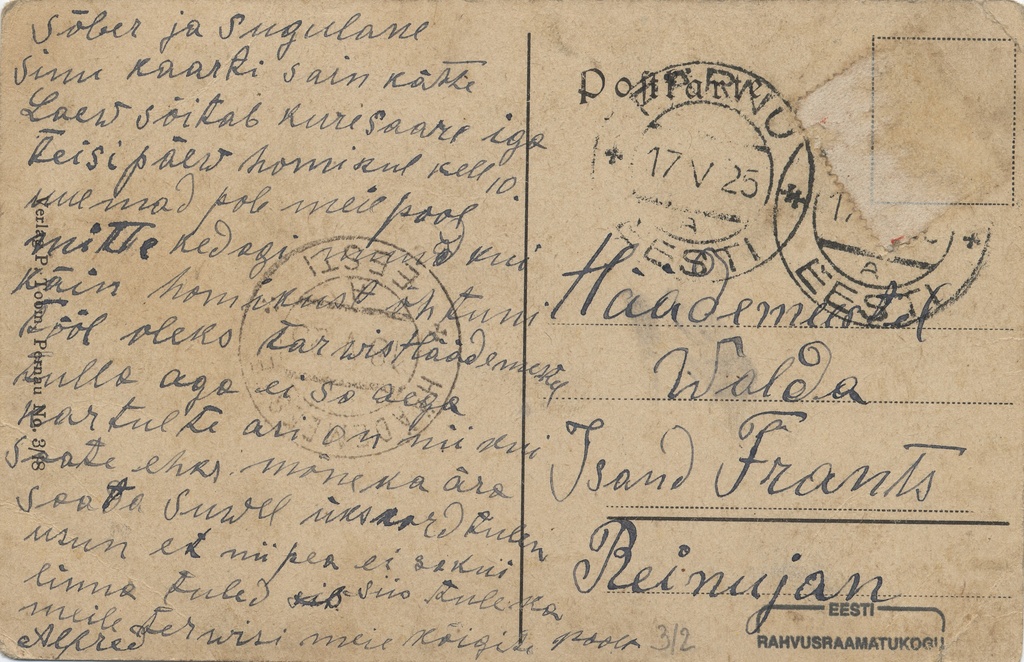 Sõber ja Sugulane
Sinu kaarti sain kätte
Laew sõitab kuresaare iga
teisipäew homikul kell 10.
uuemad pole meie pool
mitte kedagi kui
käin homikust õhtuni
tööl oleks tarwis Häädemeestel
tulla aga ei so aega
kartulte ari on nii kui
Saate ehk mõneka ära
Saata Suwel ükskord tulen
usun et nii pea ei
linna tuled siis tule ka
meile terwisi meie kõigite poolt
Alfred
Verlag P. Toomej Pernau No. 3/8
Postkarte
PÄRNU
17 V 25
A
EESTI
17
A
EESTI
EESTI
Häädemeestel
Walda
Isand Frants
Reinujan
3/2
EESTI
RAHVUSRAAMATUKOGU